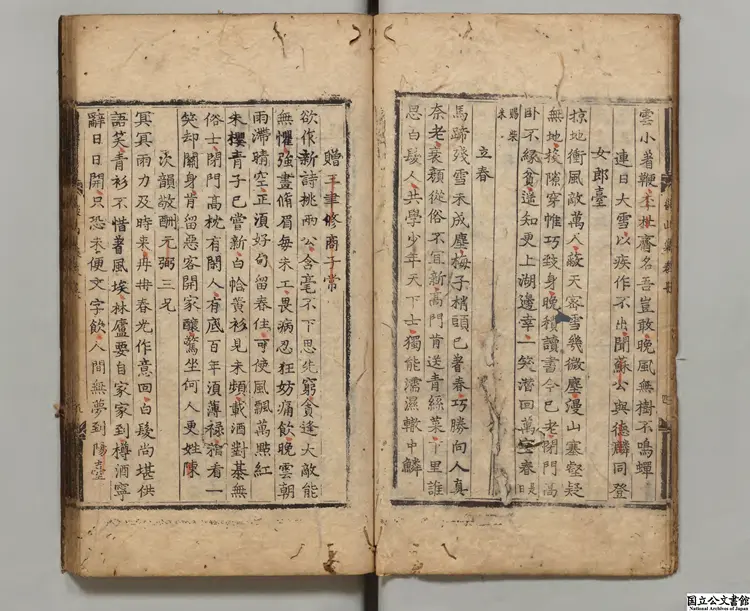 雲小著鞭李杜齊名吾豈敢晚風無樹不鳴蟬
連日大雪以疾作不出聞蘇公與德麟同登
女郎臺
掠地衝風敵萬人蔽天密雪幾微塵漫山塞壑疑
無地投隙穿帷巧致身晚積讀書今已老閉門高
臥不緣貧遥知更上湖邊寺一笑潛回萬室春 是日
賜柴米
立春
馬蹄殘雪未成塵梅子梢頭已著春巧勝向人真
奈老衰顔從俗不宜新高門肯送青絲菜千里誰
思白髮人共學少年天下士獨能濡濕轍中鱗
贈王聿修商子常
欲作新詩挑兩公含毫不下思先窮貪逢大敵能
無懼強畫脩眉每未工畏病忍狂妨痛飲晚雲朝
雨滯晴空正須好句留春住可使風飄萬點紅
朱櫻青子已嘗新白恰黄衫見未頻載酒對棊無
俗士閉門高枕有閑人有底百年須薄祿猶看一
笑却關身肯留急客開家釀驚坐何人更姓陳
次韻敬酬元弼三兄
冥冥雨力及時来冉冉春光作意回白髮尚堪供
語笑青衫不惜著風埃林廬要自家家到樽酒寧
辭日日開只恐未便文字飲人間無夢到陽臺
国立公文書館
National Archives of Japan